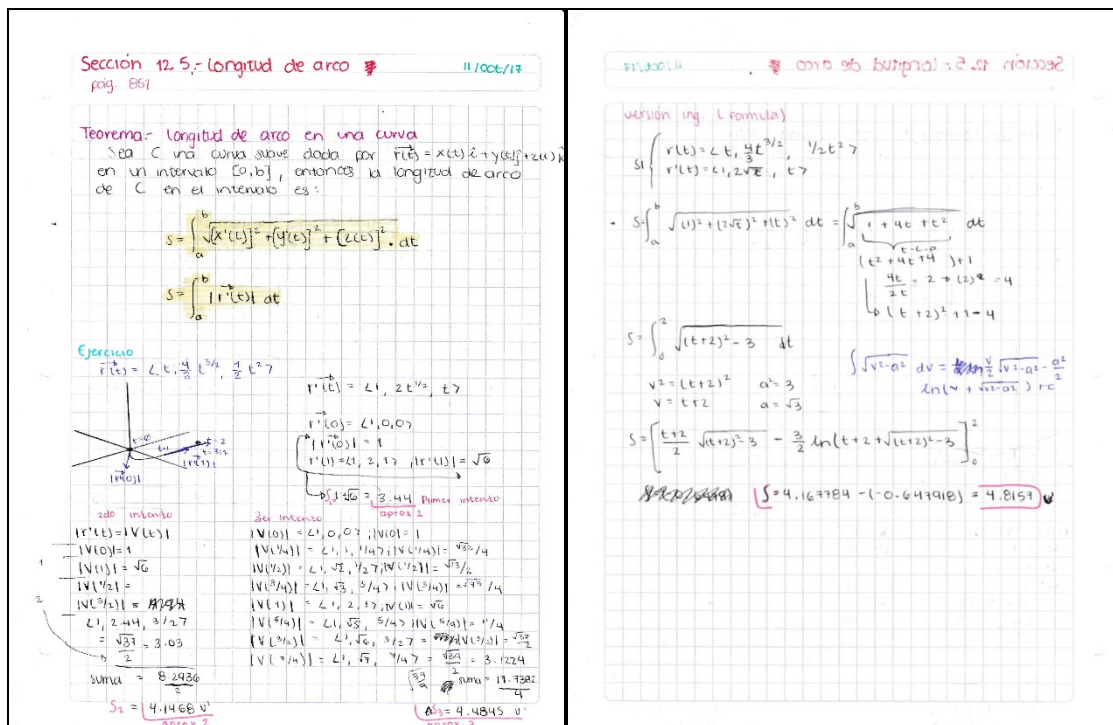 Sección 12.5.- Longitud de arco
11/Oct/17
pág. 851
Teorema.- Longitud de arco en una curva
Sea C una curva suave dada por r(t) = x(t) î + y(t) ĵ + z(t) k
en un intervalo [a,b], entonces la longitud de arco
de C en el intervalo es:
S = ∫_a^b √[x'(t)]² + [y'(t)]² + [z(t)]² · dt
S = ∫_a^b |r'(t)| dt
Ejercicio
r(t) = <t, 4/3 t^3/2, 1/2 t²>
t=0
t=1
t=3/2
t=2
|r'(1)|
|r'(0)|
r'(t) = <1, 2t^1/2, t>
r'(0) = <1,0,0>
|r'(0)| = 1
r'(1) = <1, 2, 1> ; |r'(1)| = √6
1+√6 = 3.44 Primer intento
aprox 1
2do intento
|r'(t) = |V(t)|
|V(0)| = 1
|V(1)| = √6
|V(1/2)| =
|V(3/2)| =
<1, 2.44, 3/2>
= √37/2 = 3.03
suma = 8.2936/2
S₂ = 4.1468 u'
aprox 2
1
2
3er intento
|V(0)| = <1,0,0> ; |V(0)| = 1
|V(1/4)| = <1, 1, 1/4> ; |V(1/4)| = √33/4
|V(1/2)| = <1, √2, 1/2> ; |V(1/2)| = √13/2
|V(3/4)| = <1, √3, 3/4> ; |V(3/4)| = √73/4
|V(1)| = <1, 2, 1> ; |V(1)| = √6
|V(5/4)| = <1, √5, 5/4> ; |V(5/4)| = 11/4
|V(3/2)| = <1, √6, 3/2> = |V(3/2)| = √37/2
|V(7/4)| = <1, √7, 7/4> = √39/2 = 3.1224
suma = 17.7382/4
S₃ = 4.4845 u'
aprox 3
versión ing. (formula)
si { r(t) = <t, 4/3 t^3/2, 1/2 t²>
r'(t) = <1, 2√t, t>
S = ∫_a^b √(1)² + (2√t)² + (t)² dt = ∫_a^b √1 + 4t + t² dt
t-c-p
(t² + 4t + 4) + 1
4t/2t = 2 → (2)² = 4
(t + 2)² + 1 - 4
S = ∫_0^2 √(t+2)² - 3 dt
v² = (t+2)² a² = 3
v = t+2 a = √3
∫ √v²-a² dv = v/2 √v²-a² - a²/2
ln(v + √v²-a²) + c
S = [t+2/2 √(t+2)²-3 - 3/2 ln(t+2+√(t+2)²-3]_0^2
S = 4.167784 - (-0.647918) = 4.8157